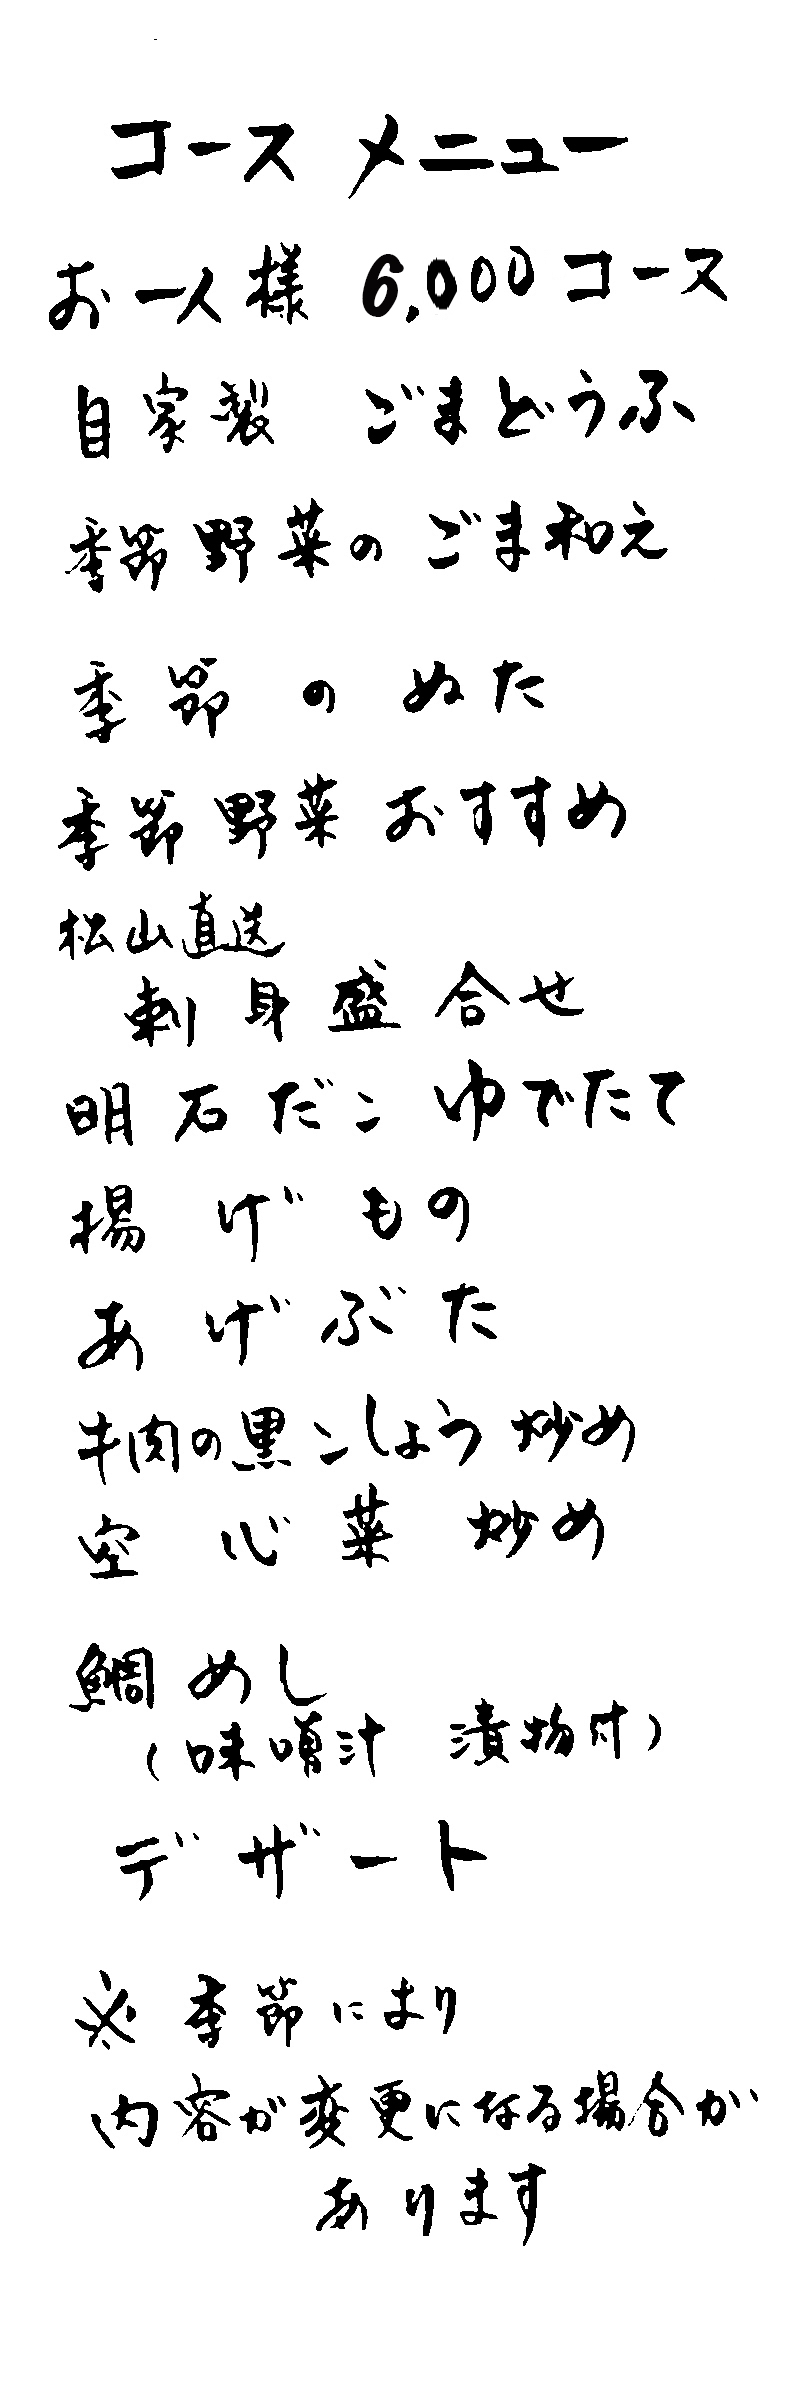 コース メニュー
お一人様 6,000コース
自家製 ごまどうふ
季節野菜の ごま和え
季節 の ぬた
季節野菜 おすすめ
松山直送
刺身盛合せ
明石だこ ゆでたて
揚げもの
あげぶた
牛肉の黒こしょう 炒め
空心菜 炒め
鯛めし
(味噌汁 漬物付)
デザート
※季節により
内容が変更になる場合が
あります